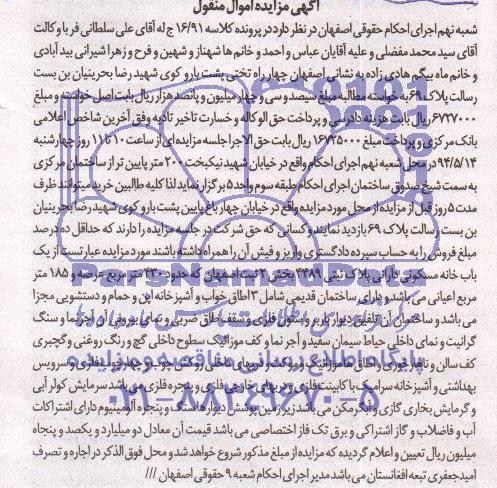 آگهی مزایده اموال منقول
شعبه نهم اجرای احکام حقوقی اصفهان در نظر دارد در پرونده کلاسه ۱۶/۹۱ ج له آقای علی سلطانی فر با وکالت
آقای سید محمد مفضلی و علیه آقایان عباس و احمد و خانم ها شهناز و شهین و فرح و زهرا شیرانی بیدآبادی
و خانم ماه بیگم هادی زاده به نشانی اصفهان چهار راه تختی پشت بارو کوی شهید رضا بحرینیان بن بست
رسالت پلاک ۶۹ به خواسته مطالبه مبلغ سیصد و سی و چهار میلیون و پانصد هزار ریال بابت اصل خواسته و مبلغ
۶۷۲۷۰۰۰ ریال بابت هزینه دادرسی و پرداخت حق الوکاله و خسارت تاخیر تادیه وفق آخرین شاخص اعلامی
بانک مرکزی و پرداخت مبلغ ۱۶۷۲۵۰۰۰ ریال بابت حق الاجرا جلسه مزایده ای از ساعت ۱۰ تا ۱۱ روز چهارشنبه
۹۴/۵/۱۴ در محل شعبه نهم اجرای احکام واقع در خیابان شهید نیکبخت ۲۰۰ متر پایین تر از ساختمان مرکزی
به سمت شیخ صدوق ساختمان اجرای احکام طبقه سوم واحد ۵ برگزار نماید لذا کلیه طالبین خرید میتوانند ظرف
مدت ۵ روز قبل از مزایده از محل مورد مزایده واقع در خیابان چهار باغ پایین پشت بارو کوی شهید رضا بحرینیان
بن بست رسالت پلاک ۶۹ بازدید نمایند و کسانی که حق شرکت در جلسه مزایده را دارند که حداقل ده درصد
مبلغ فروش را به حساب سپرده دادگستری واریز و فیش آن را همراه داشته باشند مورد مزایده عبارتست از یک
باب خانه مسکونی دارای پلاک ثبتی ۴۴۸۹ بخش ۲ ثبت اصفهان که حدود ۴۳۰ متر مربع عرصه و ۱۸۵ متر
مربع اعیانی می باشد و دارای ساختمان قدیمی شامل ۳ اطاق خواب و آشپزخانه اپن و حمام و دستشویی مجزا
می باشد و ساختمان آن تلفیق دیوار باربر و ستون فلزی و سقف طاق ضربی و نمای بیرونی آن آجرنما و سنگ
گرانیت و نمای داخلی حیاط سیمان سفید و آجر نما و کف موزائیک سطوح داخلی گچ و رنگ روغنی و گچبری
کف سالن و ناهار خوری و اطاق ها موزائیک و موکت دربهای داخلی روکش چوب چهارچوب فلزی و سرویس
بهداشتی و آشپزخانه سرامیک با کابینت فلزی و دربهای خارجی فلزی و پنجره فلزی می باشد سرمایش کولر آبی
و گرمایش بخاری گازی و آبگرمکن می باشد زیرزمین پوشش دیوارها سنگ و پنجره آلومینیوم دارای اشتراکات
آب و فاضلاب و گاز اشتراکی و برق تک فاز اختصاصی می باشد قیمت آن معادل دو میلیارد و یکصد و پنجاه
میلیون ریال تعیین و اعلام گردیده که مزایده از مبلغ مذکور شروع خواهد شد و محل فوق الذکر در اجاره و تصرف
امید جعفری تبعه افغانستان می باشد مدیر اجرای احکام شعبه ۹ حقوقی اصفهان ///
ParsNamadData
پایگاه اطلاع رسانی مناقصه و مزایده
۰۲۱-۸۸۳۴۹۶۷۰-۵